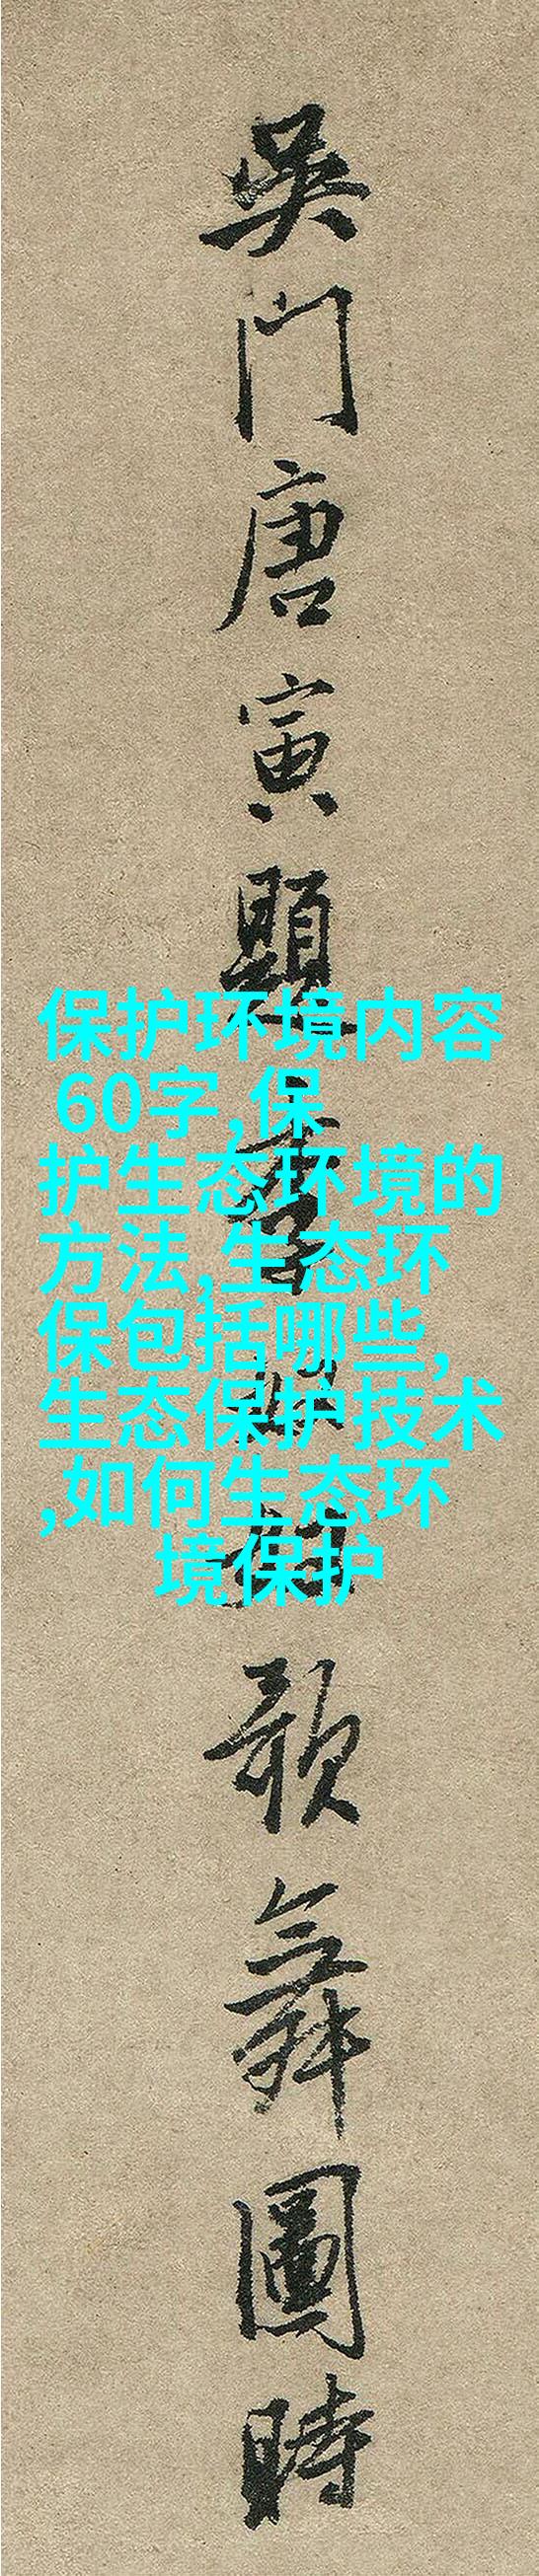 吳門唐寅題李
歌舞圖時
保护环境内容
60字,保
护生态环境的
方法,生态环
保包括哪些,
生态保护技术
,如何生态环
境保护